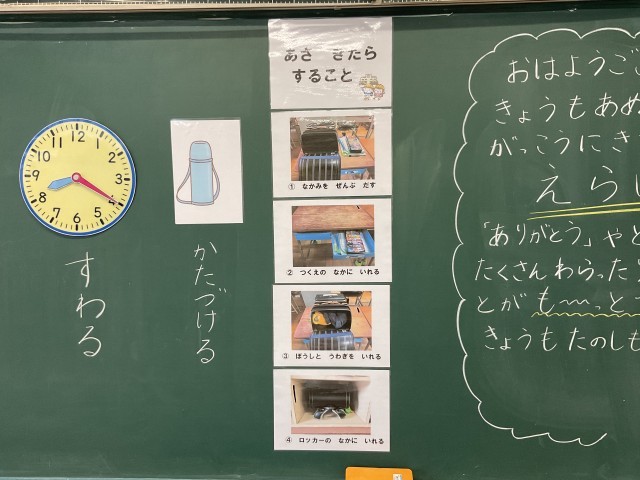 12
1
2
3
4
5
6
7
8
9
10
11
すわる
かたづける
あさ きたら
すること
① なかみを ぜんぶ だす
② つくえの なかに いれる
③ ぼうしと うわぎを いれる
④ ロッカーの なかに いれる
おはようご
きょうもあめ
がっこうにき
えら
「ありがとう」やと
たくさんわらった
とがも〜〜っと
きょうもたのしも